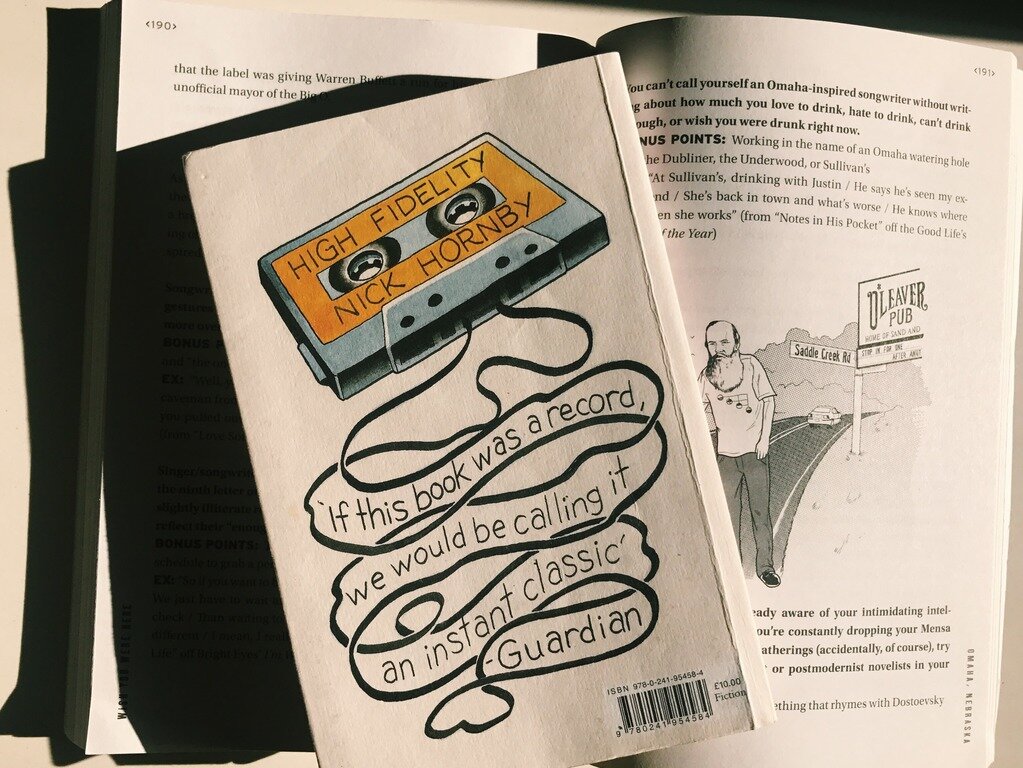 <190>
that the label was giving Warren Buffett a run for
unofficial mayor of the Big O.
Songw
gestures
more over
BONUS P
and "the o
EX: "Well,
caveman from
you pulled ou
(from "Love So
Singer/songwrit
the ninth letter o
slightly illiterate
reflect their "enoug
BONUS POINTS:
schedule to grab a pe
EX: "So if you want to
We just have to wait
check / Than waiting to
different / I mean, I real
Life" off Bright Eyes' I'm W
WISH YOU WERE HERE
HIGH FIDELITY
NICK HORNBY
'If this book was a record,
we would be calling it
an instant classic'
-Guardian
ISBN 978-0-241-95458-4
£10.00
Fiction
9 780241 954584
<191>
ou can't call yourself an Omaha-inspired songwriter without writ-
g about how much you love to drink, hate to drink, can't drink
ough, or wish you were drunk right now.
NUS POINTS: Working in the name of an Omaha watering hole
he Dubliner, the Underwood, or Sullivan's
"At Sullivan's, drinking with Justin / He says he's seen my ex-
end / She's back in town and what's worse / He knows where
en she works" (from "Notes in His Pocket" off the Good Life's
of the Year)
O'LEAVER
PUB
HOME OF SAND AND
STOP IN FOR ONE
AFTER AWHI
Saddle Creek Rd
eady aware of your intimidating intel-
ou're constantly dropping your Mensa
atherings (accidentally, of course), try
or postmodernist novelists in your
ething that rhymes with Dostoevsky
OMAHA, NEBRASKA